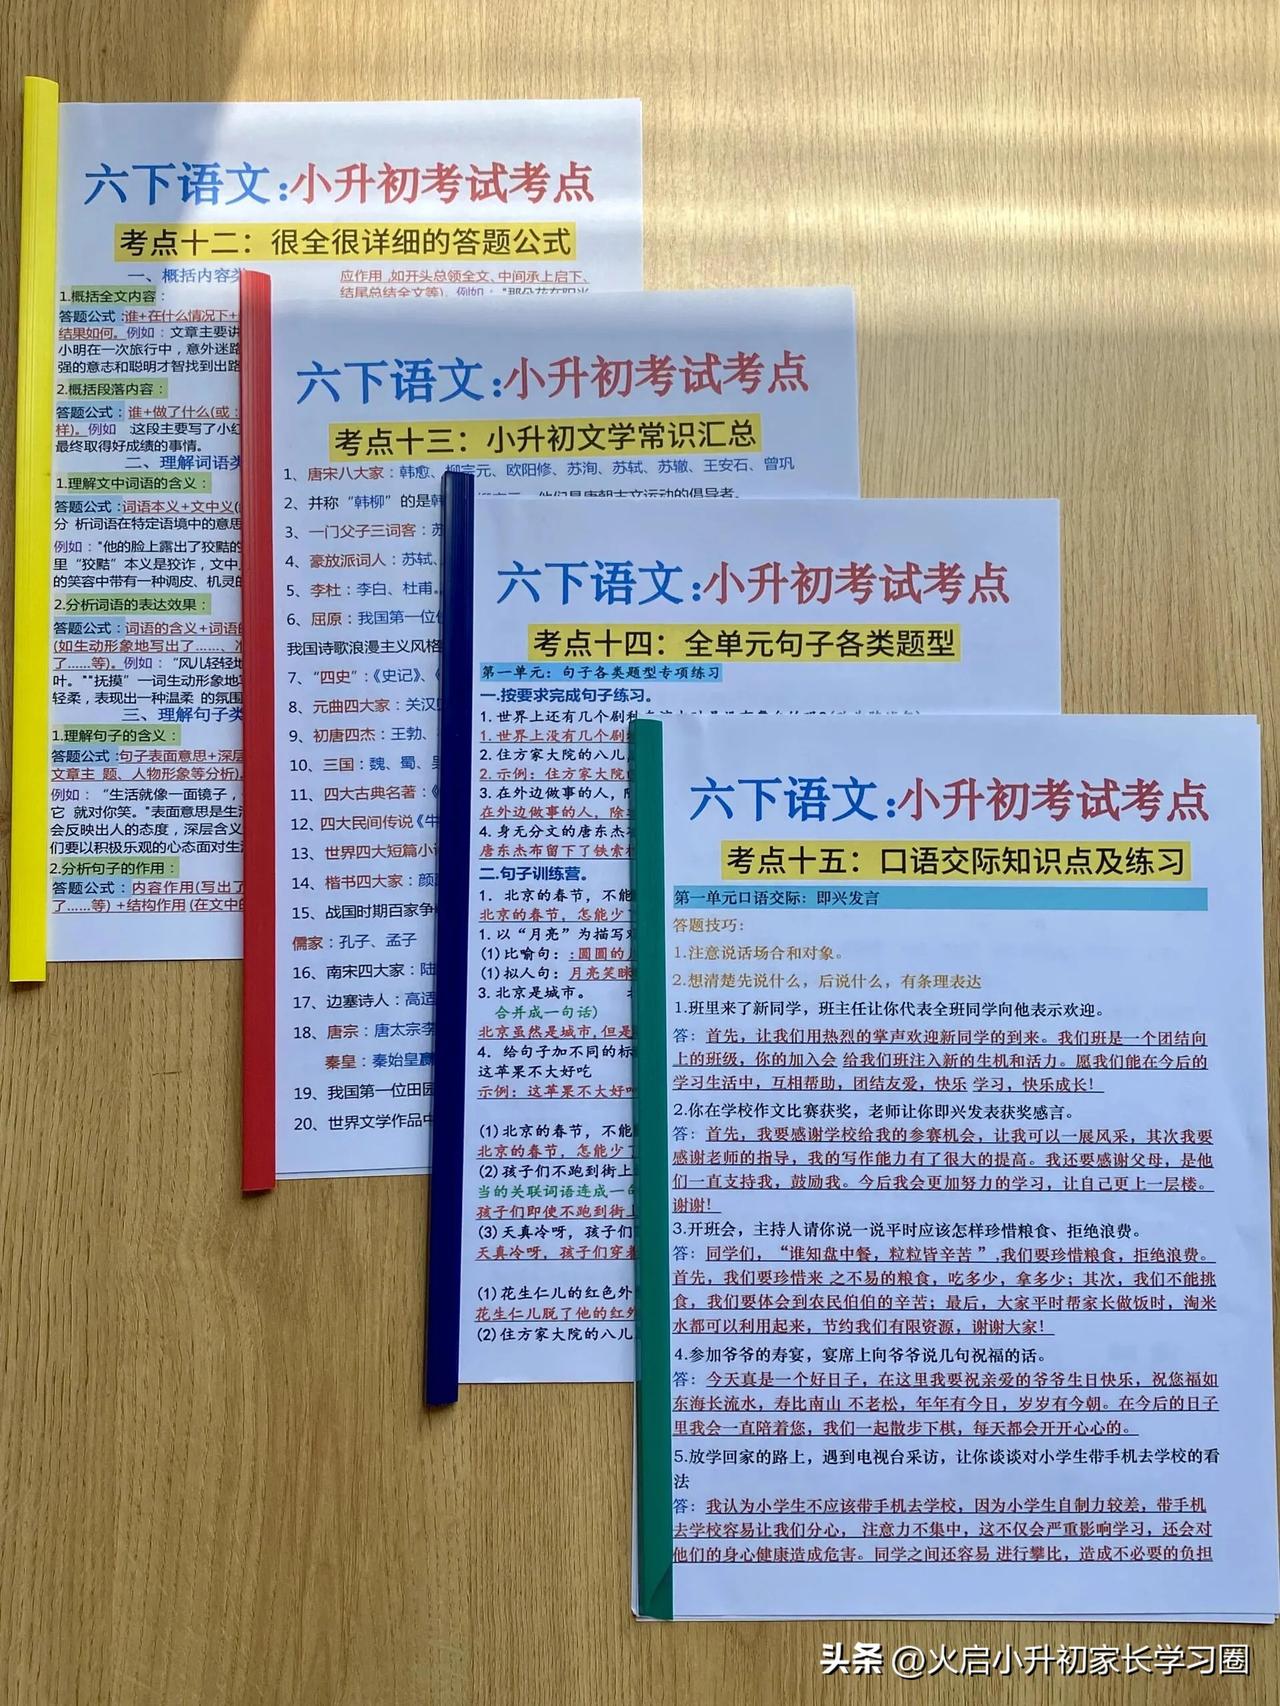 六下语文:小升初考试考点
考点十二：很全很详细的答题公式
一、概括内容类
1.概括全文内容：
答题公式:谁+在什么情况下+
结果如何。例如：文章主要讲
小明在一次旅行中，意外迷路
强的意志和聪明才智找到出路
2.概括段落内容：
答题公式：谁+做了什么(或：
样)。例如 这段主要写了小红
最终取得好成绩的事情。
二、理解词语类
1.理解文中词语的含义：
答题公式:词语本义+文中义(
分 析词语在特定语境中的意思
例如："他的脸上露出了狡黠的
里“狡黠”本义是狡诈，文中
的笑容中带有一种调皮、机灵的
2.分析词语的表达效果：
答题公式：词语的含义+词语
(如生动形象地写出了……、
了……等)。例如：“风儿轻轻地
叶。""抚摸”一词生动形象地
轻柔，表现出一种温柔 的氛围
三、理解句子类
1.理解句子的含义：
答题公式:句子表面意思+深层
文章主 题、人物形象等分析)。
例如：“生活就像一面镜子，
它 就对你笑。"表面意思是生活
会反映出人的态度，深层含义
们要以积极乐观的心态面对生活
2.分析句子的作用：
答题公式：内容作用(写出了
了……等) +结构作用 (在文中的
应作用 ,如开头总领全文、中间承上启下、
结尾总结全文等)。例如：“那分花在阳光
六下语文:小升初考试考点
考点十三：小升初文学常识汇总
1、唐宋八大家：韩愈、柳宗元、欧阳修、苏洵、苏轼、苏辙、王安石、曾巩
2、并称“韩柳”的是韩 柳宗元，他们是唐朝古文运动的倡导者。
3、一门父子三词客：苏
4、豪放派词人：苏轼、
5、李杜：李白、杜甫。
6、屈原：我国第一位伟
我国诗歌浪漫主义风格
7、“四史”：《史记》、《
8、元曲四大家：关汉
9、初唐四杰：王勃、
10、三国：魏、蜀、吴
11、四大古典名著：《
12、四大民间传说《牛
13、世界四大短篇小
14、楷书四大家：颜
15、战国时期百家争
儒家：孔子、孟子
16、南宋四大家：陆
17、边塞诗人：高适
18、唐宗：唐太宗李
秦皇：秦始皇嬴
19、我国第一位田园
20、世界文学作品中
六下语文:小升初考试考点
考点十四：全单元句子各类题型
第一单元：句子各类题型专项练习
一.按要求完成句子练习。
1.世界上还有几个剧种
1.世界上没有几个剧
2.住方家大院的八儿
2.示例：住方家大院的
3.在外边做事的人，
在外边做事的人，除
4.身无分文的唐东杰布
唐东杰布留下了铁索桥
二.句子训练营。
1. 北京的春节，不能
北京的春节，怎能少了
1.以“月亮”为描写对
(1)比喻句：:圆圆的月
(1)拟人句：月亮笑眯
3.北京是城市。
合并成一句话)
北京虽然是城市,但是
4. 给句子加不同的标
这苹果不大好吃
示例：这苹果不大好吃
(1)北京的春节，不能
北京的春节，怎能少了
(2)孩子们不跑到街上
当的关联词语连成一句
孩子们即使不跑到街上
(3)天真冷呀，孩子们
天真冷呀，孩子们穿着
(1)花生仁儿的红色外
花生仁儿脱了他的红外
(2)住方家大院的八儿
六下语文:小升初考试考点
考点十五：口语交际知识点及练习
第一单元口语交际：即兴发言
答题技巧：
1.注意说话场合和对象。
2.想清楚先说什么，后说什么，有条理表达
1.班里来了新同学，班主任让你代表全班同学向他表示欢迎。
答：首先，让我们用热烈的掌声欢迎新同学的到来。我们班是一个团结向
上的班级，你的加入会 给我们班注入新的生机和活力。愿我们能在今后的
学习生活中，互相帮助，团结友爱，快乐 学习，快乐成长！
2.你在学校作文比赛获奖，老师让你即兴发表获奖感言。
答：首先，我要感谢学校给我的参赛机会，让我可以一展风采，其次我要
感谢老师的指导，我的写作能力有了很大的提高。我还要感谢父母，是他
们一直支持我，鼓励我。今后我会更加努力的学习，让自己更上一层楼。
谢谢！
3.开班会，主持人请你说一说平时应该怎样珍惜粮食、拒绝浪费。
答：同学们，“谁知盘中餐，粒粒皆辛苦 ”,我们要珍惜粮食，拒绝浪费。
首先，我们要珍惜来 之不易的粮食，吃多少，拿多少；其次，我们不能挑
食，我们要体会到农民伯伯的辛苦；最后，大家平时帮家长做饭时，淘米
水都可以利用起来，节约我们有限资源，谢谢大家！
4.参加爷爷的寿宴，宴席上向爷爷说几句祝福的话。
答：今天真是一个好日子，在这里我要祝亲爱的爷爷生日快乐，祝您福如
东海长流水，寿比南山 不老松，年年有今日，岁岁有今朝。在今后的日子
里我会一直陪着您，我们一起散步下棋，每天都会开开心心的。
5.放学回家的路上，遇到电视台采访，让你谈谈对小学生带手机去学校的看
法
答：我认为小学生不应该带手机去学校，因为小学生自制力较差，带手机
去学校容易让我们分心， 注意力不集中，这不仅会严重影响学习，还会对
他们的身心健康造成危害。同学之间还容易 进行攀比，造成不必要的负担
头条 @火启小升初家长学习圈